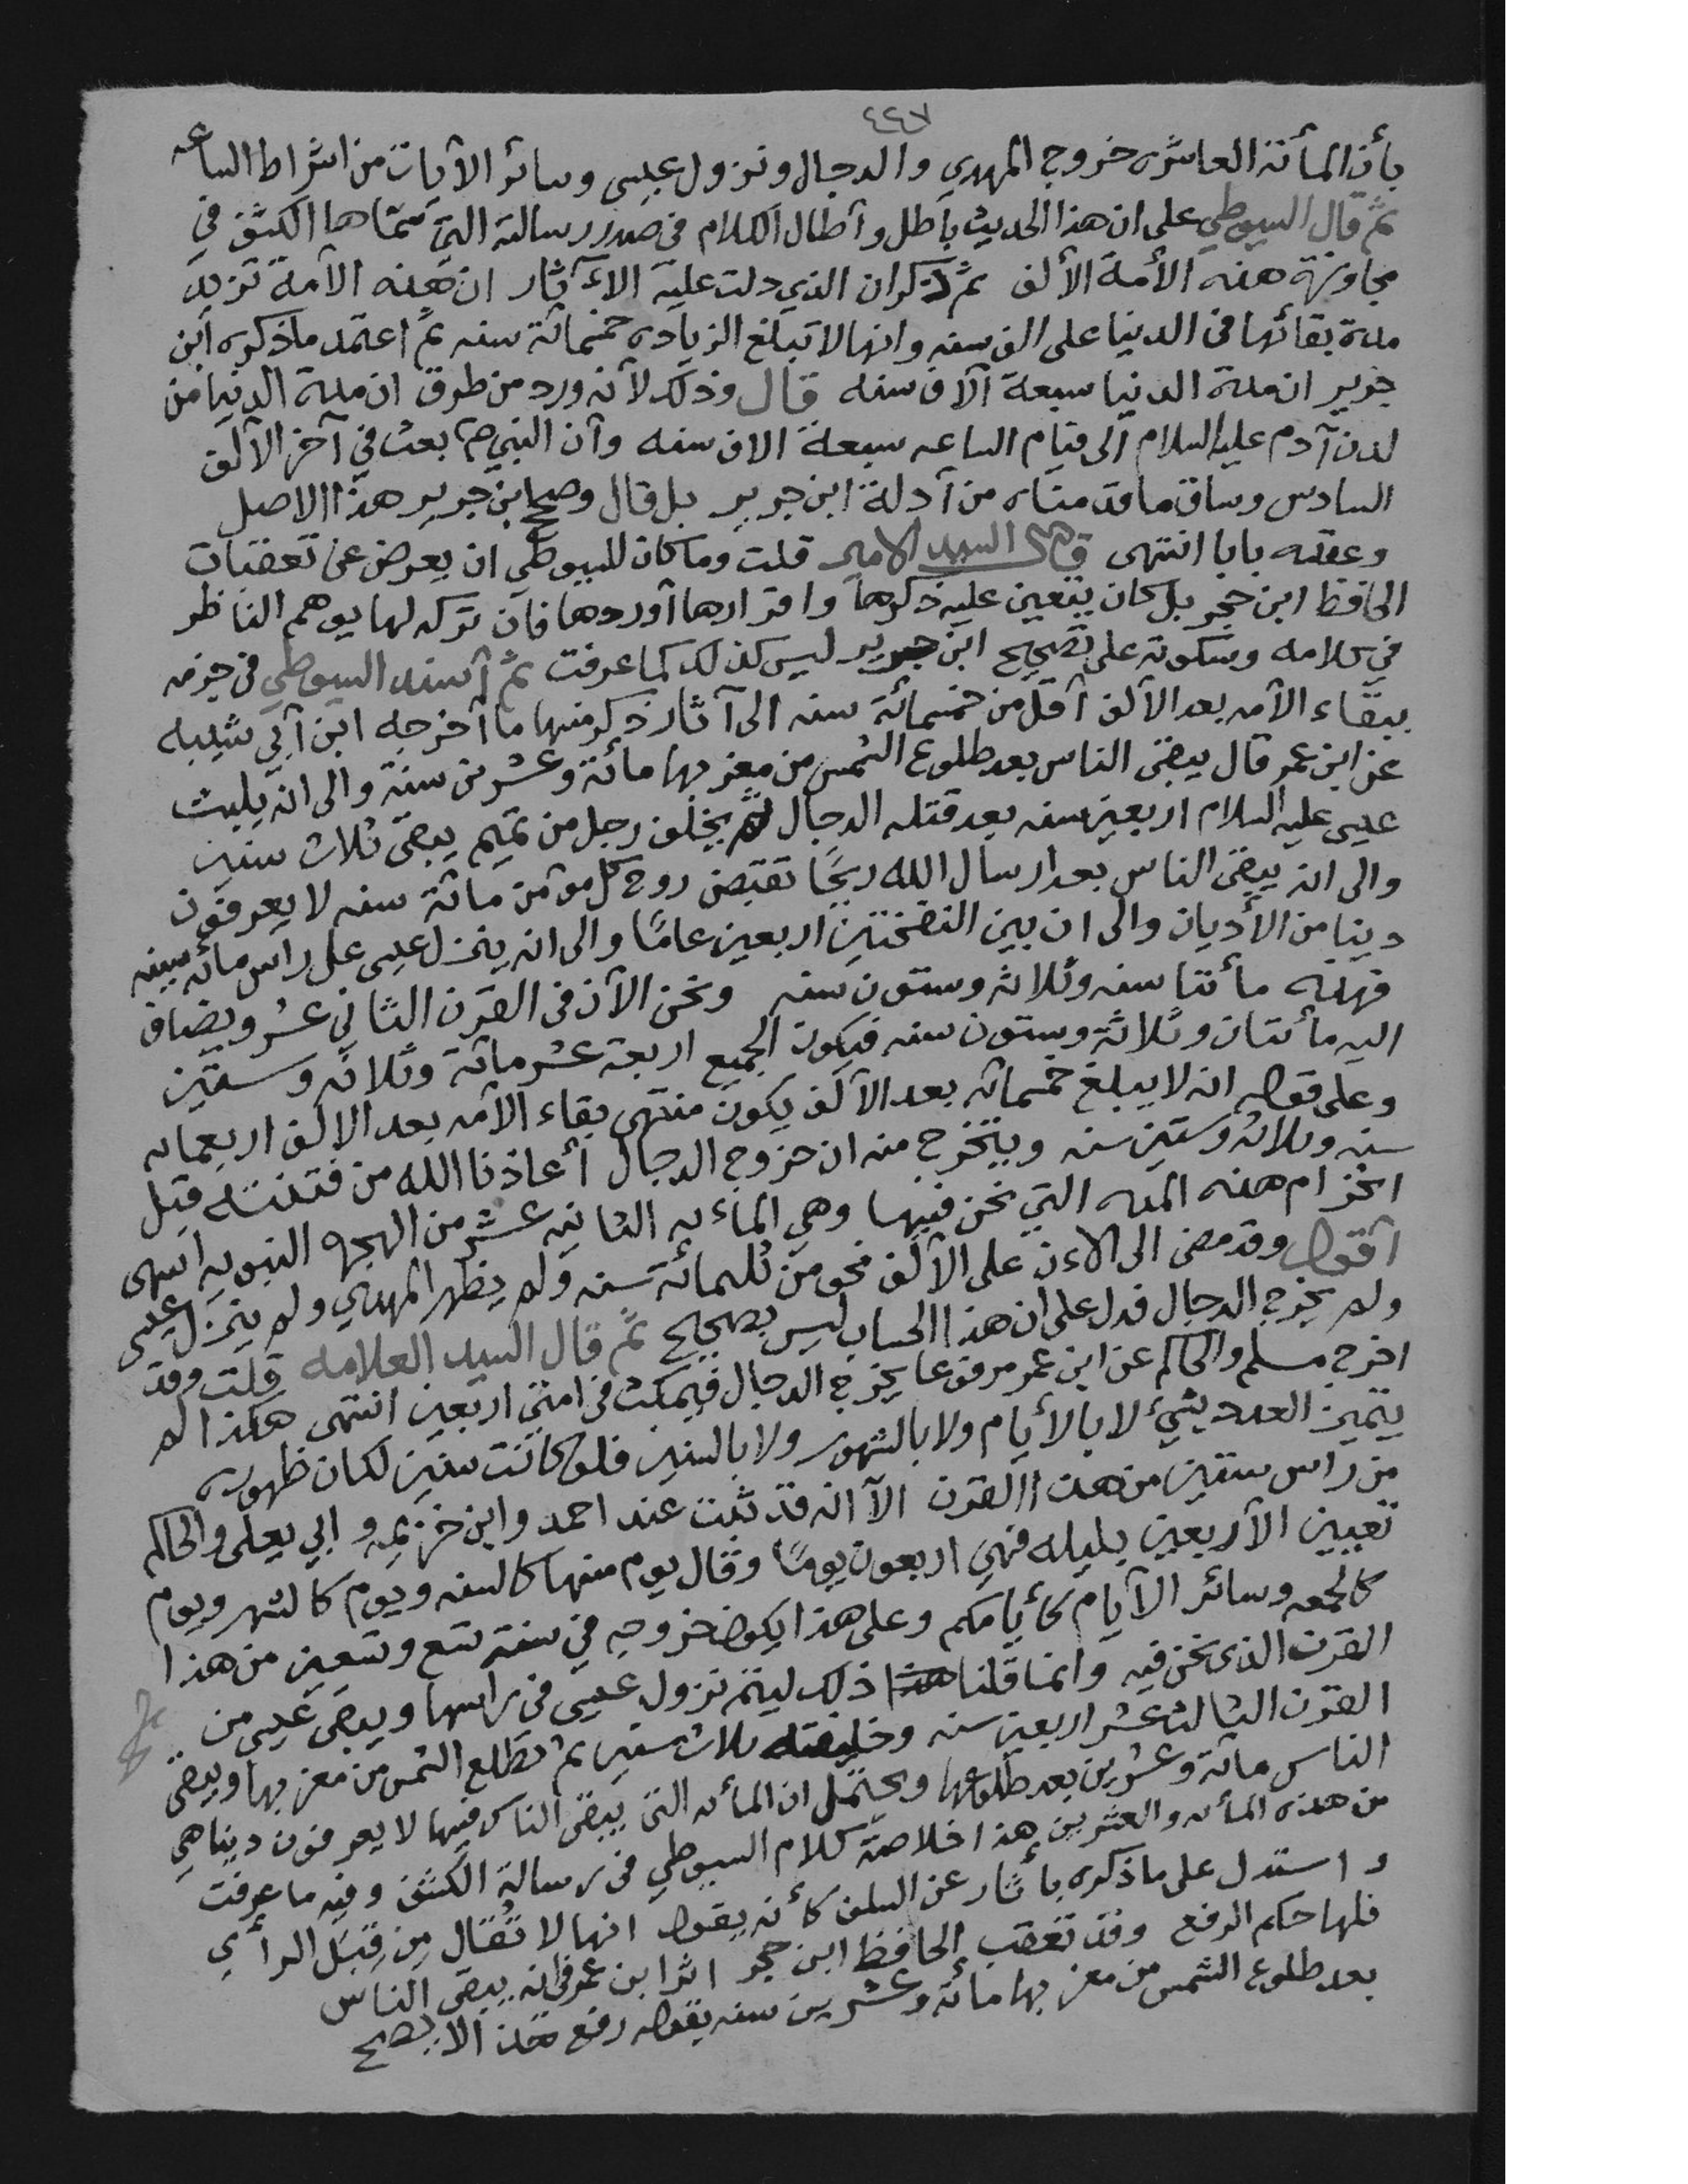 ٤٤٧
بأن المأئة العاشره خروج المهدي والدجال ونزول عيسى وسائر الآيات من اشراط الساعه
ثم قال السيوطي على ان هذا الحديث باطل وأطال الكلام في صدر رسالته التي سماها الكشف في
مجاوزة هذه الأمة الألف ثم ذكر ان الذي دلت عليه الآثار ان هذه الأمة تزيد
مدة بقائها في الدنيا على الف سنه وانها لا تبلغ الزياده خمسمائة سنه ثم اعتمد ما ذكره ابن
جرير ان مدة الدنيا سبعة آلاف سنه قال وذلك لأنه ورد من طرق ان مدة الدنيا من
لدن آدم عليه السلام الى قيام الساعه سبعة الاف سنه وأن النبي صم بعث في آخر الألف
السادس وساق ما قدمناه من أدلة ابن جرير بل قال وصحح ابن جرير هذا الاصل
وعقله بابا انتهى قال السيد الامير قلت وما كان للسيوطي ان يعرض عن تعقبات
الحافظ ابن حجر بل كان يتعين عليه ذكرها واقرارها أو ردها فان تركه لها يوهم الناظر
في كلامه وسكوته على تصحيح ابن جرير ليس كذلك كما عرفت ثم أسند السيوطي في جزمه
ببقاء الأمه بعد الألف أقل من خمسمائة سنه الى آثار ذكر منها ما أخرجه ابن أبي شيبه
عن ابن عمر قال يبقى الناس بعد طلوع الشمس من مغربها مائة وعشرين سنة والى انه يلبث
عيسى عليه السلام اربعين سنه بعد قتله الدجال ثم يخلف رجل من تميم يبقى ثلاث سنين
والى انه يبقى الناس بعد ارسال الله ريحًا تقبض روح كل مؤمن مائة سنه لا يعرفون
دينا من الأديان والى ان بين النفختين اربعين عامًا والى انه ينزل عيسى على راس مائة سنه
فهذه مأئتا سنه وثلاثه وستون سنه ونحن الآن في القرن الثاني عشر ويضاف
اليه مأئتان وثلاثة وستون سنه فيكون الجميع اربعة عشر مائة وثلاثه وستين
وعلى قوله انه لا يبلغ خمسمائه بعد الألف يكون منتهى بقاء الأمه بعد الالف اربعمائه
سنه وثلاثه وستين سنه ويتخرج منه ان خروج الدجال أعاذنا الله من فتنته قبل
انخرام هذه المده التي نحن فيها وهي المأيه الثانيه عشر من الهجره النبويه انتهى
أقول وقد مضى الى الاءن على الألف نحو من ثلثمائة سنه ولم يظهر المهدي ولم ينزل عيسى
ولم يخرج الدجال فدل على ان هذا الحساب ليس بصحيح ثم قال السيد العلامه قلت وقد
اخرج مسلم والحاكم عن ابن عمر مرفوعا يخرج الدجال فيمكث في امتي اربعين انتهى هكذا لم
يتميز العدد بشيء لا بالأيام ولا بالشهور ولا بالسنين فلو كانت سنين لكان ظهوره
من راس ستين من هذا القرن الا انه قد ثبت عند احمد وابن خزيمه وابي يعلى والحاكم
تعيين الأربعين بليله فهي اربعون يومًا وقال يوم منها كالسنه ويوم كالشهر ويوم
كالجمعه وسائر الأيام كأيامكم وعلى هذا يكون خروجه في سنة تسع وتسعين من هذا
القرن الذي نحن فيه وانما قلنا ذلك ليتم نزول عيسى في راسها ويبقى عيسى من
القرن الثالث عشر اربعين سنه وخليفته ثلاث سنين ثم تطلع الشمس من مغربها ويبقى
الناس مائة وعشرين بعد طلوعها ويحتمل ان المأئه التي يبقى الناس فيها لا يعرفون دينا هي
من هذه المأئه والعشرين هذا خلاصة كلام السيوطي في رسالة الكشف وفيه ما عرفت
واستدل على ما ذكره بأثار عن السلف كأنه يقول انها لا تُقال من قِبَل الرأي
فلها حكم الرفع وقد تعقب الحافظ ابن حجر اثر ابن عمر في انه يبقى الناس
بعد طلوع الشمس من مغربها مائة وعشرين سنه بقوله رفع هذا لا يصح